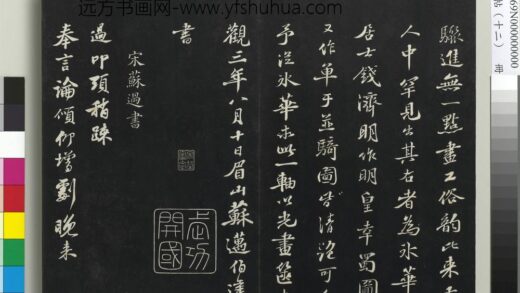 远方书画网- www.yfshuhua.com
69N0000000000
帖（十二）
進無一點畫工俗韵比來
人中罕見出其右者為冰華
居士錢濟明作明皇幸蜀圖
又作單于並騎圖皆清可
予從冰華求此一軸以光畫篋
觀三年八月十日眉山蘇邁伯達
書
武功
開國
宋蘇過書
過叩頭稽疎
奉言論傾仰增劇晚来